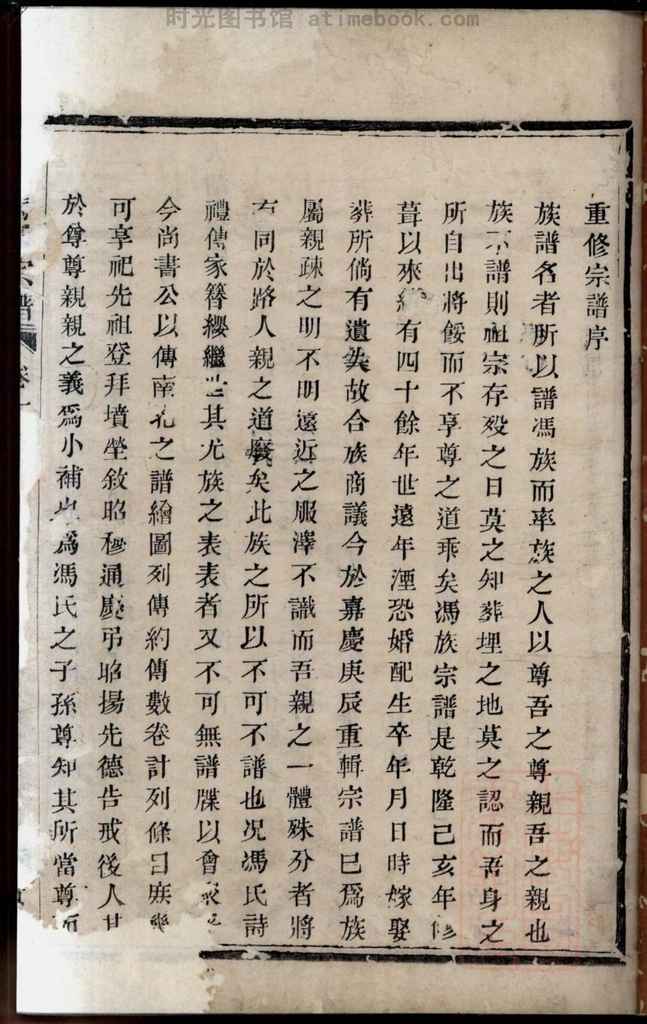 时光图书馆 atimebook.com
重修宗譜序
族譜名者所以譜馮族而率族之人以尊吾之尊親吾之親也
族不譜則祖宗存殁之日莫之知葬埋之地莫之認而吾身之
所自出將餒而不享尊之道乖矣馮族宗譜是乾隆己亥年修
葺以來 有四十餘年世遠年湮恐婚配生卒年月日時嫁娶
葬所倘有遺失故合族商議今於嘉慶庚辰重輯宗譜已爲族
屬親疎之明不明遠近之服澤不識而吾親之一體殊分者將
有同於路人親之道廢矣此族之所以不可不譜也况馮氏詩
禮傳家簪纓繼世其尤族之表表者又不可無譜牒以會
今尚書公以傳南北之譜繪圖列傳約傳數卷計列條目庶幾
可享祀先祖登拜墳塋敘昭穆通慶弔昭揚先德告戒後人其
於尊尊親親之義爲小補也爲馮氏之子孫尊知其所當尊而
宗譜 卷一